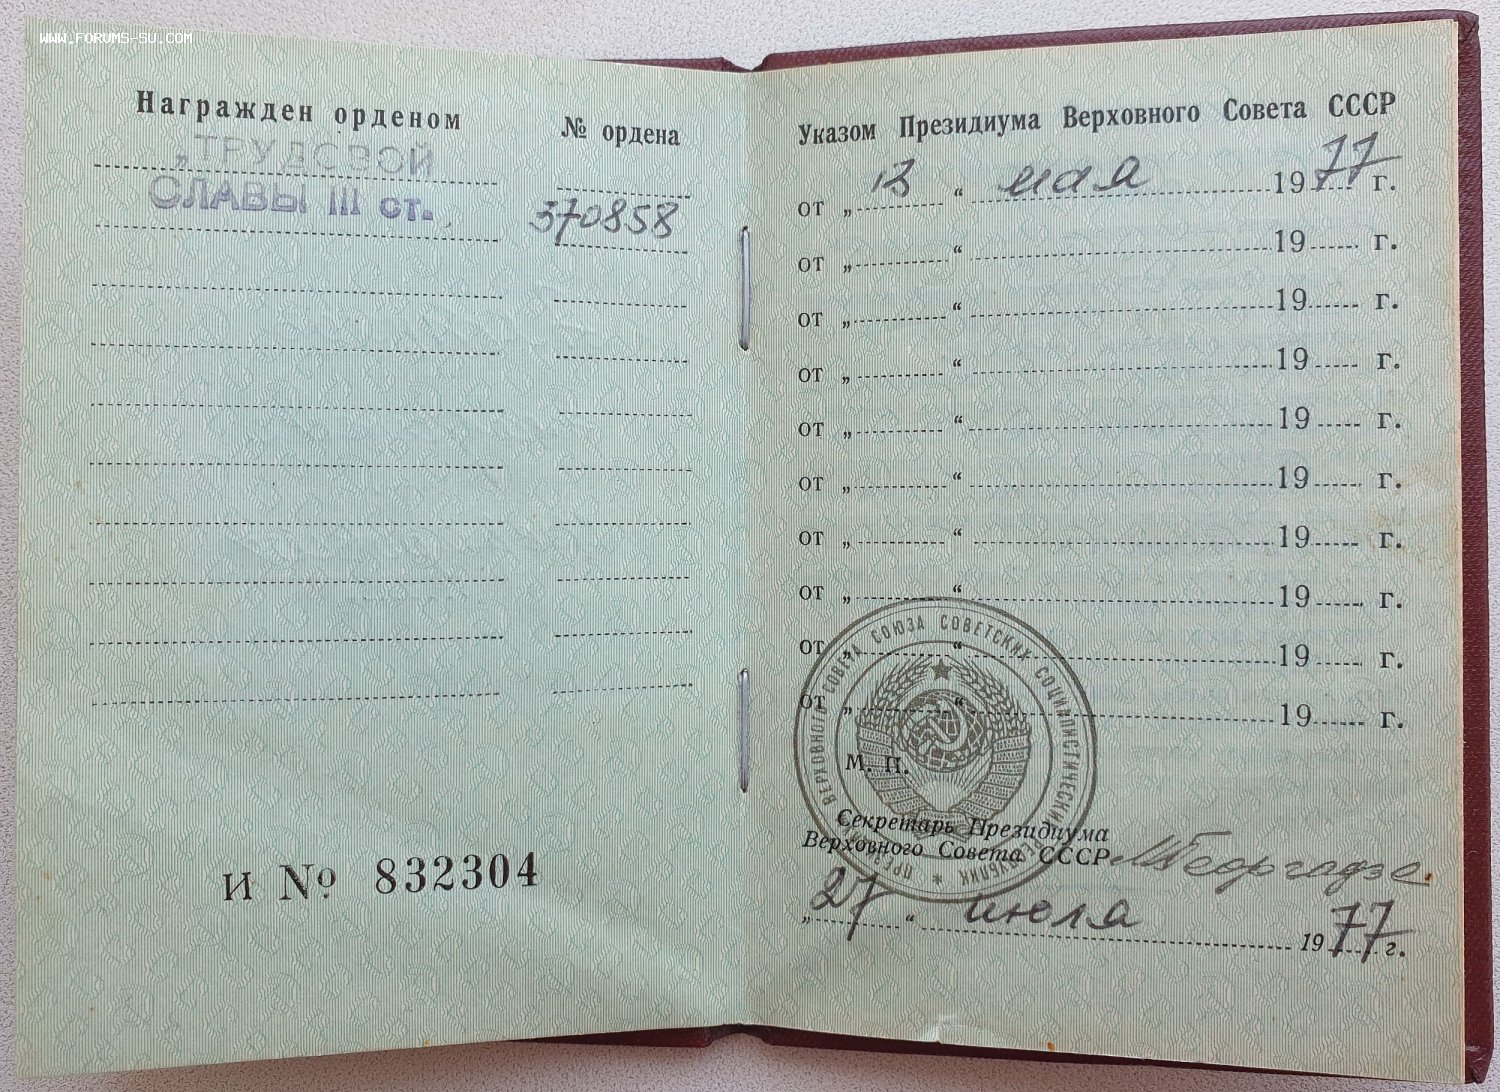 WWW.FORUMS-SU.COM
Награжден орденом
№ ордена
„ТРУДОВОЙ
СЛАВЫ III ст.
370858
И № 832304
Указом Президиума Верховного Совета СССР
от „ 13 “ мая 1977 г.
от „ “ 19 г.
от „ “ 19 г.
от „ “ 19 г.
от „ “ 19 г.
от „ “ 19 г.
от „ “ 19 г.
от „ “ 19 г.
от „ “ 19 г.
от „ “ 19 г.
ПРЕЗИДИУМ ВЕРХОВНОГО СОВЕТА СОЮЗА СОВЕТСКИХ СОЦИАЛИСТИЧЕСКИХ РЕСПУБЛИК
М. П.
Секретарь Президиума
Верховного Совета СССР МГеоргадзе.
„ 27 “ июля 1977 г.